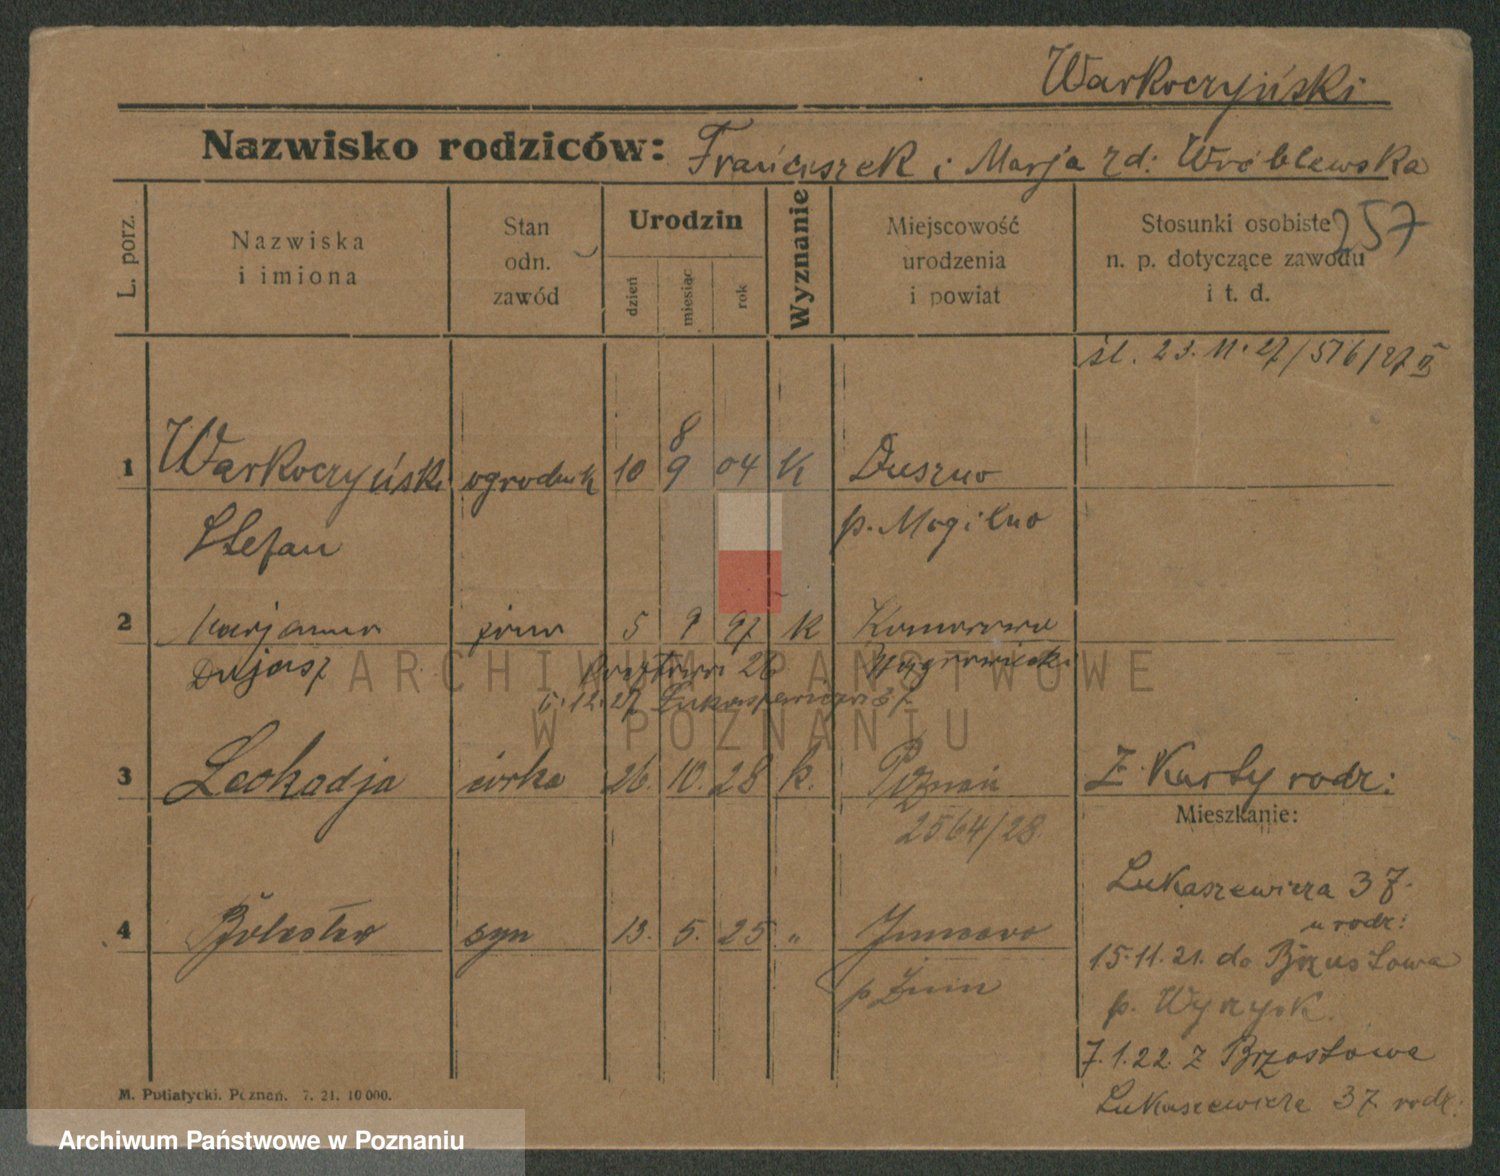 Warkoczyński
Nazwisko rodziców: Franciszek i Marja zd: Wróblewska
L. porz.
Nazwiska
i imiona
Stan
odn.
zawód
Urodzin
dzień
miesiąc
rok
Wyznanie
Miejscowość
urodzenia
i powiat
Stosunki osobiste
n. p. dotyczące zawodu
i t. d.
257
śl. 23.11.27/576/27
8
1 Warkoczyński ogrodnik 10 9 04 K Duszno
Stefan p. Mogilno
2 Marjanna żona 5 9 97 K
26
12.27 Łukaszewicza 37
3 Leokadja córka 26. 10. 28 k. Poznań Z Karty rodz:
2564/28
Mieszkanie:
Łukaszewicza 37.
u rodz:
4 Bolesław syn 13. 5. 25 „
15.11.21. do Brzostowa
p. Żnin
p. Wyrzysk.
7.1.22 z Brzostowa
Łukaszewicza 37 rodz.
M. Putiatycki. Poznań. 7. 21. 10 000.
ARCHIWUM PAŃSTWOWE
W POZNANIU
Archiwum Państwowe w Poznaniu